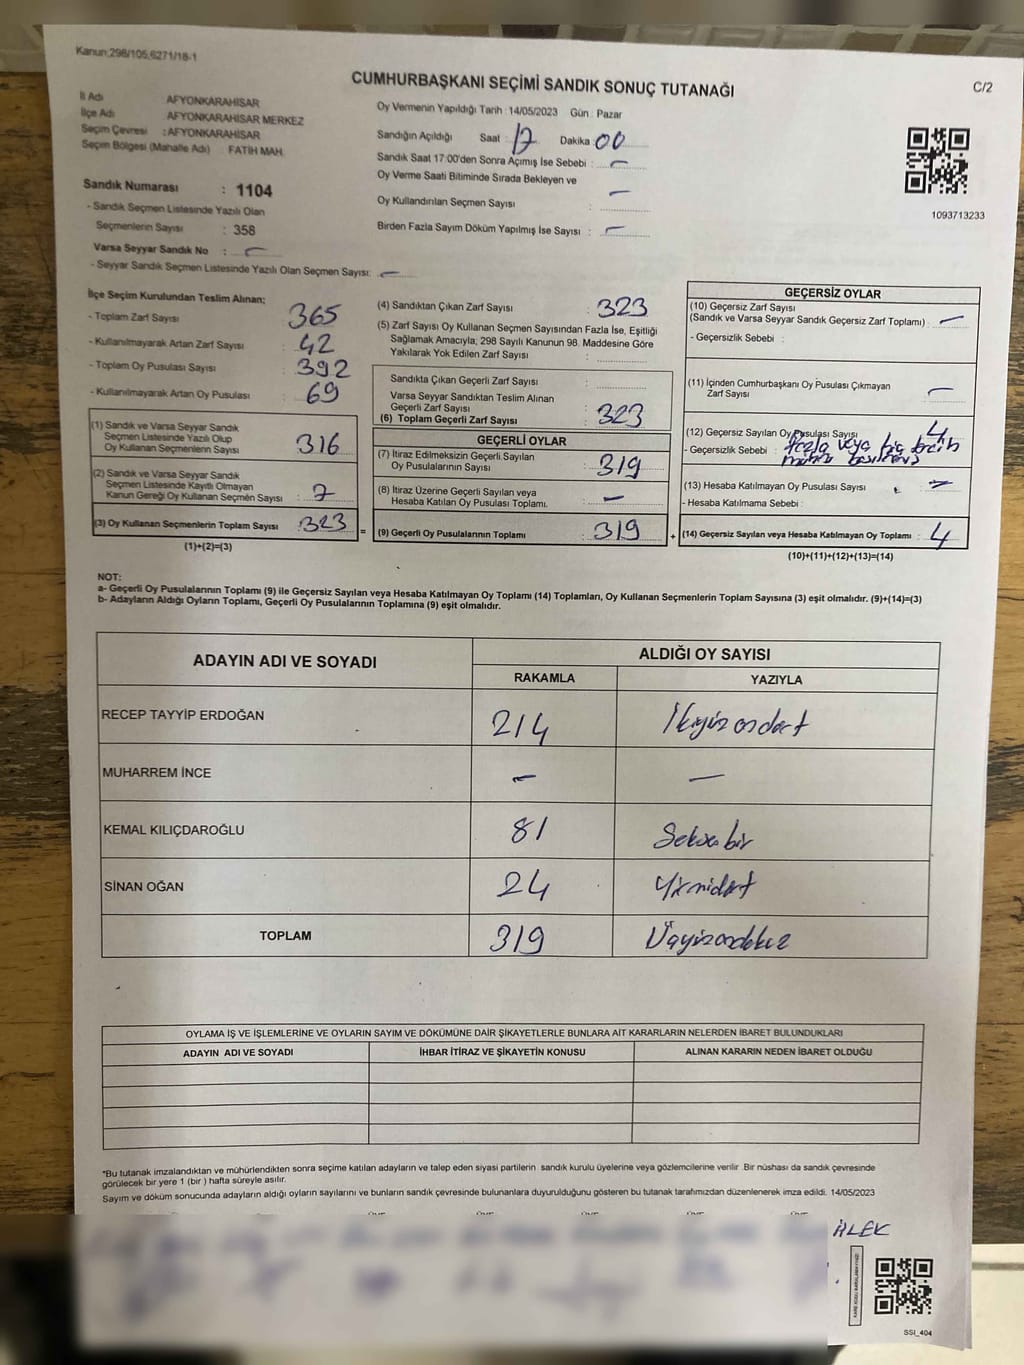 Kanun;298/105;6271/18-1
CUMHURBAŞKANI SEÇİMİ SANDIK SONUÇ TUTANAĞI
C/2
İl Adı AFYONKARAHİSAR
İlçe Adı AFYONKARAHİSAR MERKEZ
Seçim Çevresi : AFYONKARAHİSAR
Seçim Bölgesi (Mahalle Adı) FATİH MAH.
Sandık Numarası : 1104
- Sandık Seçmen Listesinde Yazılı Olan
Seçmenlerin Sayısı : 358
Varsa Seyyar Sandık No : -
- Seyyar Sandık Seçmen Listesinde Yazılı Olan Seçmen Sayısı: -
Oy Vermenin Yapıldığı Tarih : 14/05/2023 Gün : Pazar
Sandığın Açıldığı Saat : 17 Dakika : 00
Sandık Saat 17:00'den Sonra Açımış İse Sebebi : -
Oy Verme Saati Bitiminde Sırada Bekleyen ve
Oy Kullandırılan Seçmen Sayısı : -
Birden Fazla Sayım Döküm Yapılmış İse Sayısı : -
1093713233
İlçe Seçim Kurulundan Teslim Alınan;
- Toplam Zarf Sayısı : 365
- Kullanılmayarak Artan Zarf Sayısı : 42
- Toplam Oy Pusulası Sayısı : 392
- Kullanılmayarak Artan Oy Pusulası : 69
(1) Sandık ve Varsa Seyyar Sandık
Seçmen Listesinde Yazılı Olup
Oy Kullanan Seçmenlerin Sayısı : 316
(2) Sandık ve Varsa Seyyar Sandık
Seçmen Listesinde Kayıtlı Olmayan
Kanun Gereği Oy Kullanan Seçmen Sayısı : 7
(3) Oy Kullanan Seçmenlerin Toplam Sayısı : 323 =
(1)+(2)=(3)
(4) Sandıktan Çıkan Zarf Sayısı : 323
(5) Zarf Sayısı Oy Kullanan Seçmen Sayısından Fazla İse, Eşitliği
Sağlamak Amacıyla, 298 Sayılı Kanunun 98. Maddesine Göre
Yakılarak Yok Edilen Zarf Sayısı :
Sandıkta Çıkan Geçerli Zarf Sayısı :
Varsa Seyyar Sandıktan Teslim Alınan
Geçerli Zarf Sayısı :
(6) Toplam Geçerli Zarf Sayısı : 323
GEÇERLİ OYLAR
(7) İtiraz Edilmeksizin Geçerli Sayılan
Oy Pusulalarının Sayısı : 319
(8) İtiraz Üzerine Geçerli Sayılan veya
Hesaba Katılan Oy Pusulası Toplamı. : -
(9) Geçerli Oy Pusulalarının Toplamı : 319 +
GEÇERSİZ OYLAR
(10) Geçersiz Zarf Sayısı
(Sandık ve Varsa Seyyar Sandık Geçersiz Zarf Toplamı) : -
- Geçersizlik Sebebi :
(11) İçinden Cumhurbaşkanı Oy Pusulası Çıkmayan
Zarf Sayısı : -
(12) Geçersiz Sayılan Oy Pusulası Sayısı : 4
- Geçersizlik Sebebi : fazla veya hiç tercih
mührü basılmış
(13) Hesaba Katılmayan Oy Pusulası Sayısı : -
- Hesaba Katılmama Sebebi :
(14) Geçersiz Sayılan veya Hesaba Katılmayan Oy Toplamı : 4
(10)+(11)+(12)+(13)=(14)
NOT:
a- Geçerli Oy Pusulalarının Toplamı (9) ile Geçersiz Sayılan veya Hesaba Katılmayan Oy Toplamı (14) Toplamları, Oy Kullanan Seçmenlerin Toplam Sayısına (3) eşit olmalıdır. (9)+(14)=(3)
b- Adayların Aldığı Oyların Toplamı, Geçerli Oy Pusulalarının Toplamına (9) eşit olmalıdır.
ADAYIN ADI VE SOYADI ALDIĞI OY SAYISI
RAKAMLA YAZIYLA
RECEP TAYYİP ERDOĞAN 214 İkiyüzondört
MUHARREM İNCE - -
KEMAL KILIÇDAROĞLU 81 Seksenbir
SİNAN OĞAN 24 Yirmidört
TOPLAM 319 Üçyüzondokuz
OYLAMA İŞ VE İŞLEMLERİNE VE OYLARIN SAYIM VE DÖKÜMÜNE DAİR ŞİKAYETLERLE BUNLARA AİT KARARLARIN NELERDEN İBARET BULUNDUKLARI
ADAYIN ADI VE SOYADI İHBAR İTİRAZ VE ŞİKAYETİN KONUSU ALINAN KARARIN NEDEN İBARET OLDUĞU
*Bu tutanak imzalandıktan ve mühürlendikten sonra seçime katılan adayların ve talep eden siyasi partilerin sandık kurulu üyelerine veya gözlemcilerine verilir .Bir nüshası da sandık çevresinde
görülecek bir yere 1 (bir ) hafta süreyle asılır.
Sayım ve döküm sonucunda adayların aldığı oyların sayılarını ve bunların sandık çevresinde bulunanlara duyurulduğunu gösteren bu tutanak tarafımızdan düzenlenerek imza edildi. 14/05/2023
SSI_404